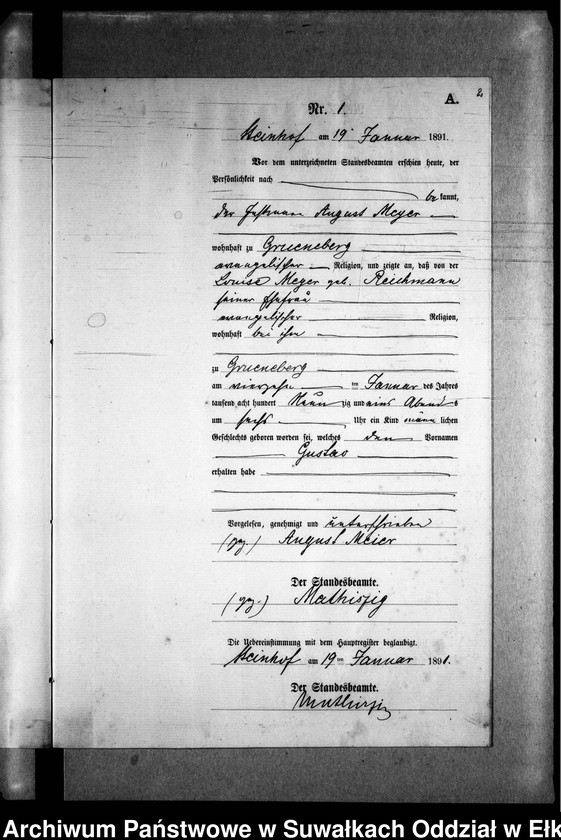 2
A.
Nr. 1.
Steinhof am 19 Januar 1891.
Vor dem unterzeichneten Standesbeamten erschien heute, der
Persönlichkeit nach
be kannt,
der August Meyer
wohnhaft zu Grueneberg
evangelischer Religion, und zeigte an, daß von der
Louise Meyer geb. Reichmann
seiner Ehefrau
evangelischer Religion,
wohnhaft bei ihm
zu Grueneberg
am vierzehn ten Januar des Jahres
tausend acht hundert Neun zig und eins Abends
um sechs Uhr ein Kind männ lichen
Geschlechts geboren worden sei, welches den Vornamen
Gustav
erhalten habe
Vorgelesen, genehmigt und unterschrieben
(gez.) August Meier
Der Standesbeamte.
(gez.) Mathiszig
Die Uebereinstimmung mit dem Hauptregister beglaubigt.
Steinhof am 19ten Januar 1891.
Der Standesbeamte.
Mathiszig
Archiwum Państwowe w Suwałkach Oddział w Ełk